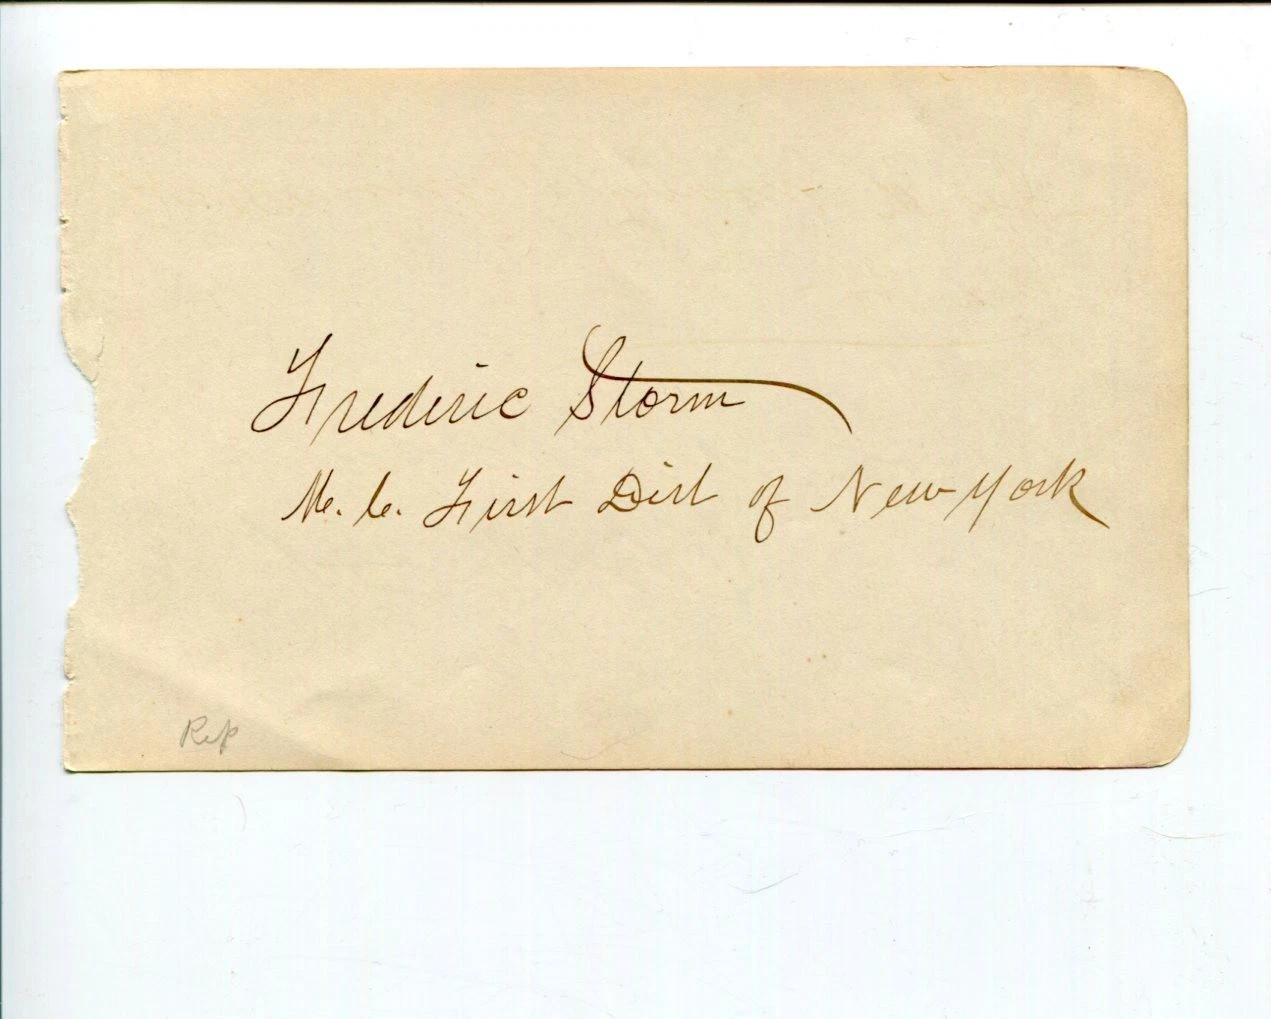 Frederic Storm
M. C. First Dist of New York
Rep